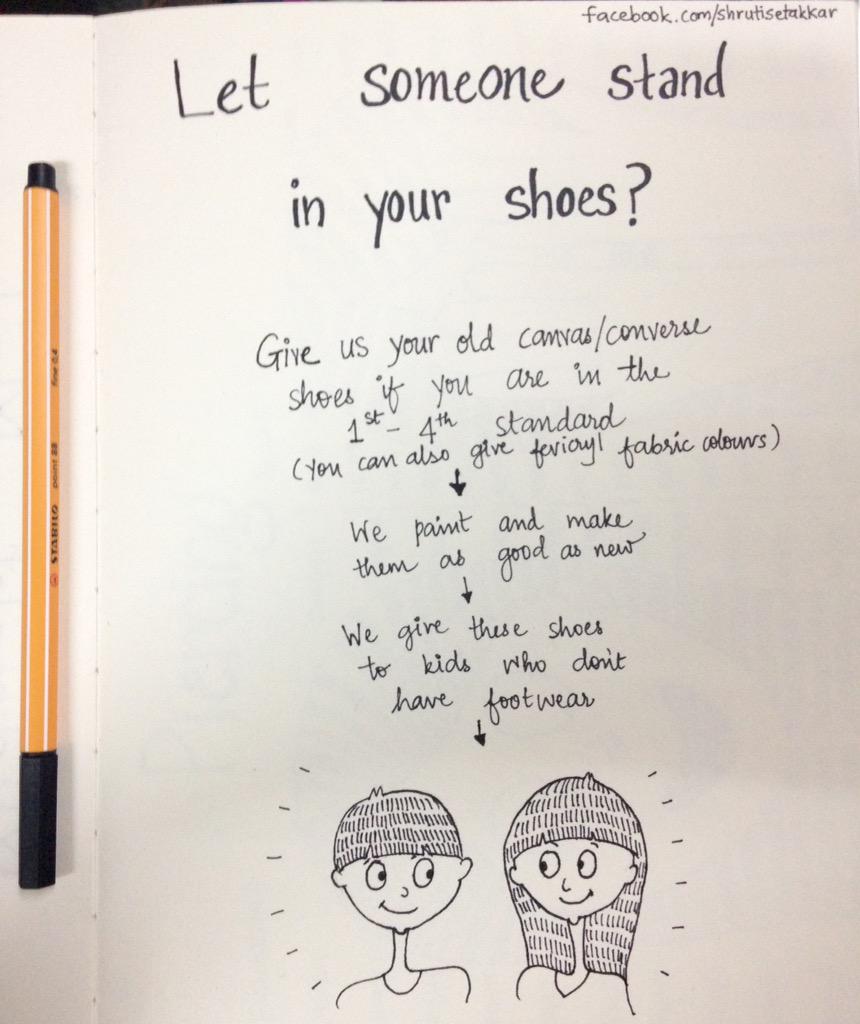 facebook.com/shrutisetakkar
Let someone stand
in your shoes?
Give us your old canvas/converse
shoes if you are in the
1st - 4th standard
(You can also give fevicryl fabric colours)
We paint and make
them as good as new
We give these shoes
to kids who don't
have footwear
STABILO point 88 fine 0.4